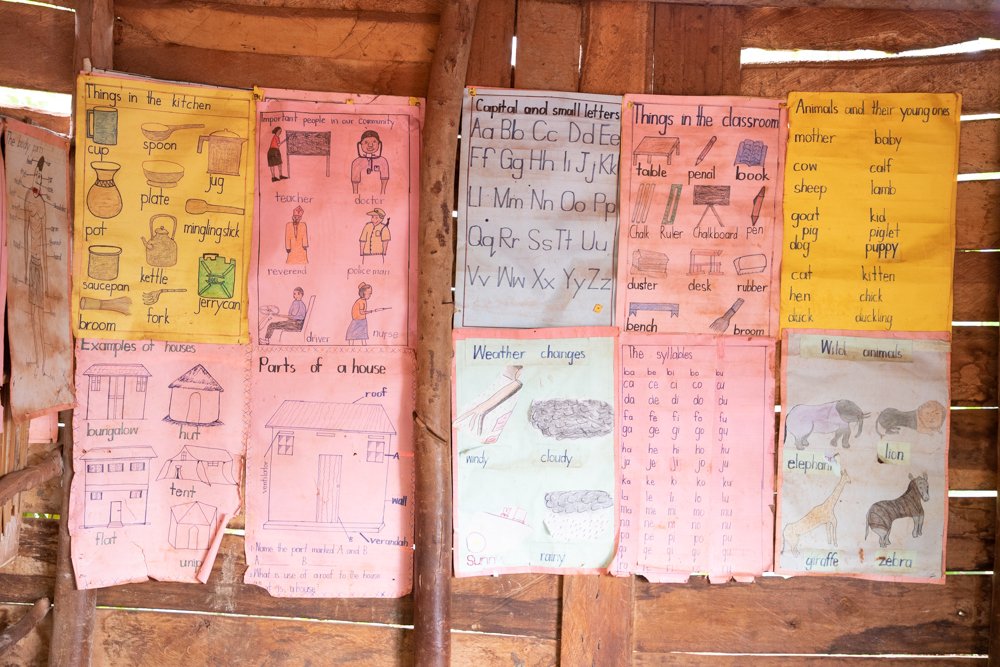 The body parts
Things in the kitchen
cup
spoon
jug
pot
plate
minglingstick
saucepan
kettle
jerrycan
broom
fork
Important people in our community
teacher
doctor
reverend
policeman
driver
nurse
Examples of houses
bungalow
hut
flat
tent
unip
Parts of a house
roof
ventilator
A
wall
B
verandah
Name the part marked A and B
A B
What is use of a roof to the house
a house
Capital and small letters
Aa Bb Cc Dd Ee
Ff Gg Hh Ii Jj Kk
Ll Mm Nn Oo Pp
Qq Rr Ss Tt Uu
Vv Ww Xx Yy Zz
Things in the classroom
table
penal
book
Chalk
Ruler
Chalkboard
pen
duster
desk
rubber
bench
broom
Animals and their young ones
mother baby
cow calf
sheep lamb
goat kid
pig piglet
dog puppy
cat kitten
hen chick
duck duckling
Weather changes
windy
cloudy
sunn
rainy
The syllables
ba be bi bo bu
ca ce ci co cu
da de di do du
fa fe fi fo fu
ga ge gi go gu
ha he hi ho hu
ja je ji jo ju
ka ke ki ko ku
la le li lo lu
ma me mi mo mu
na ne ni no nu
pa pe pi po pu
Wild animals
elephant
lion
giraffe
zebra